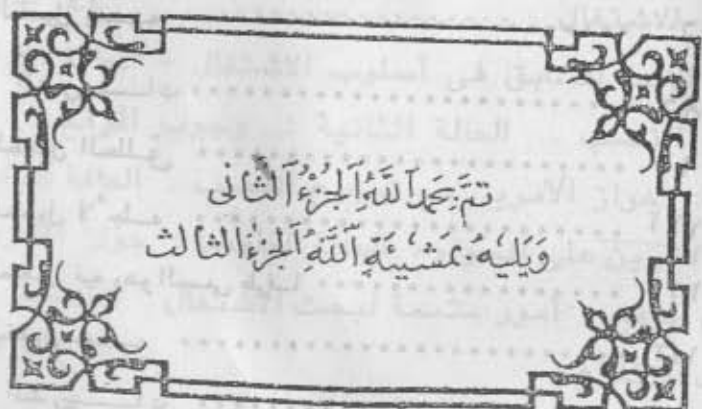 تمّ بحمد اللّه الجزء الثانى
ويليه بمشيئة اللّه الجزء الثالث